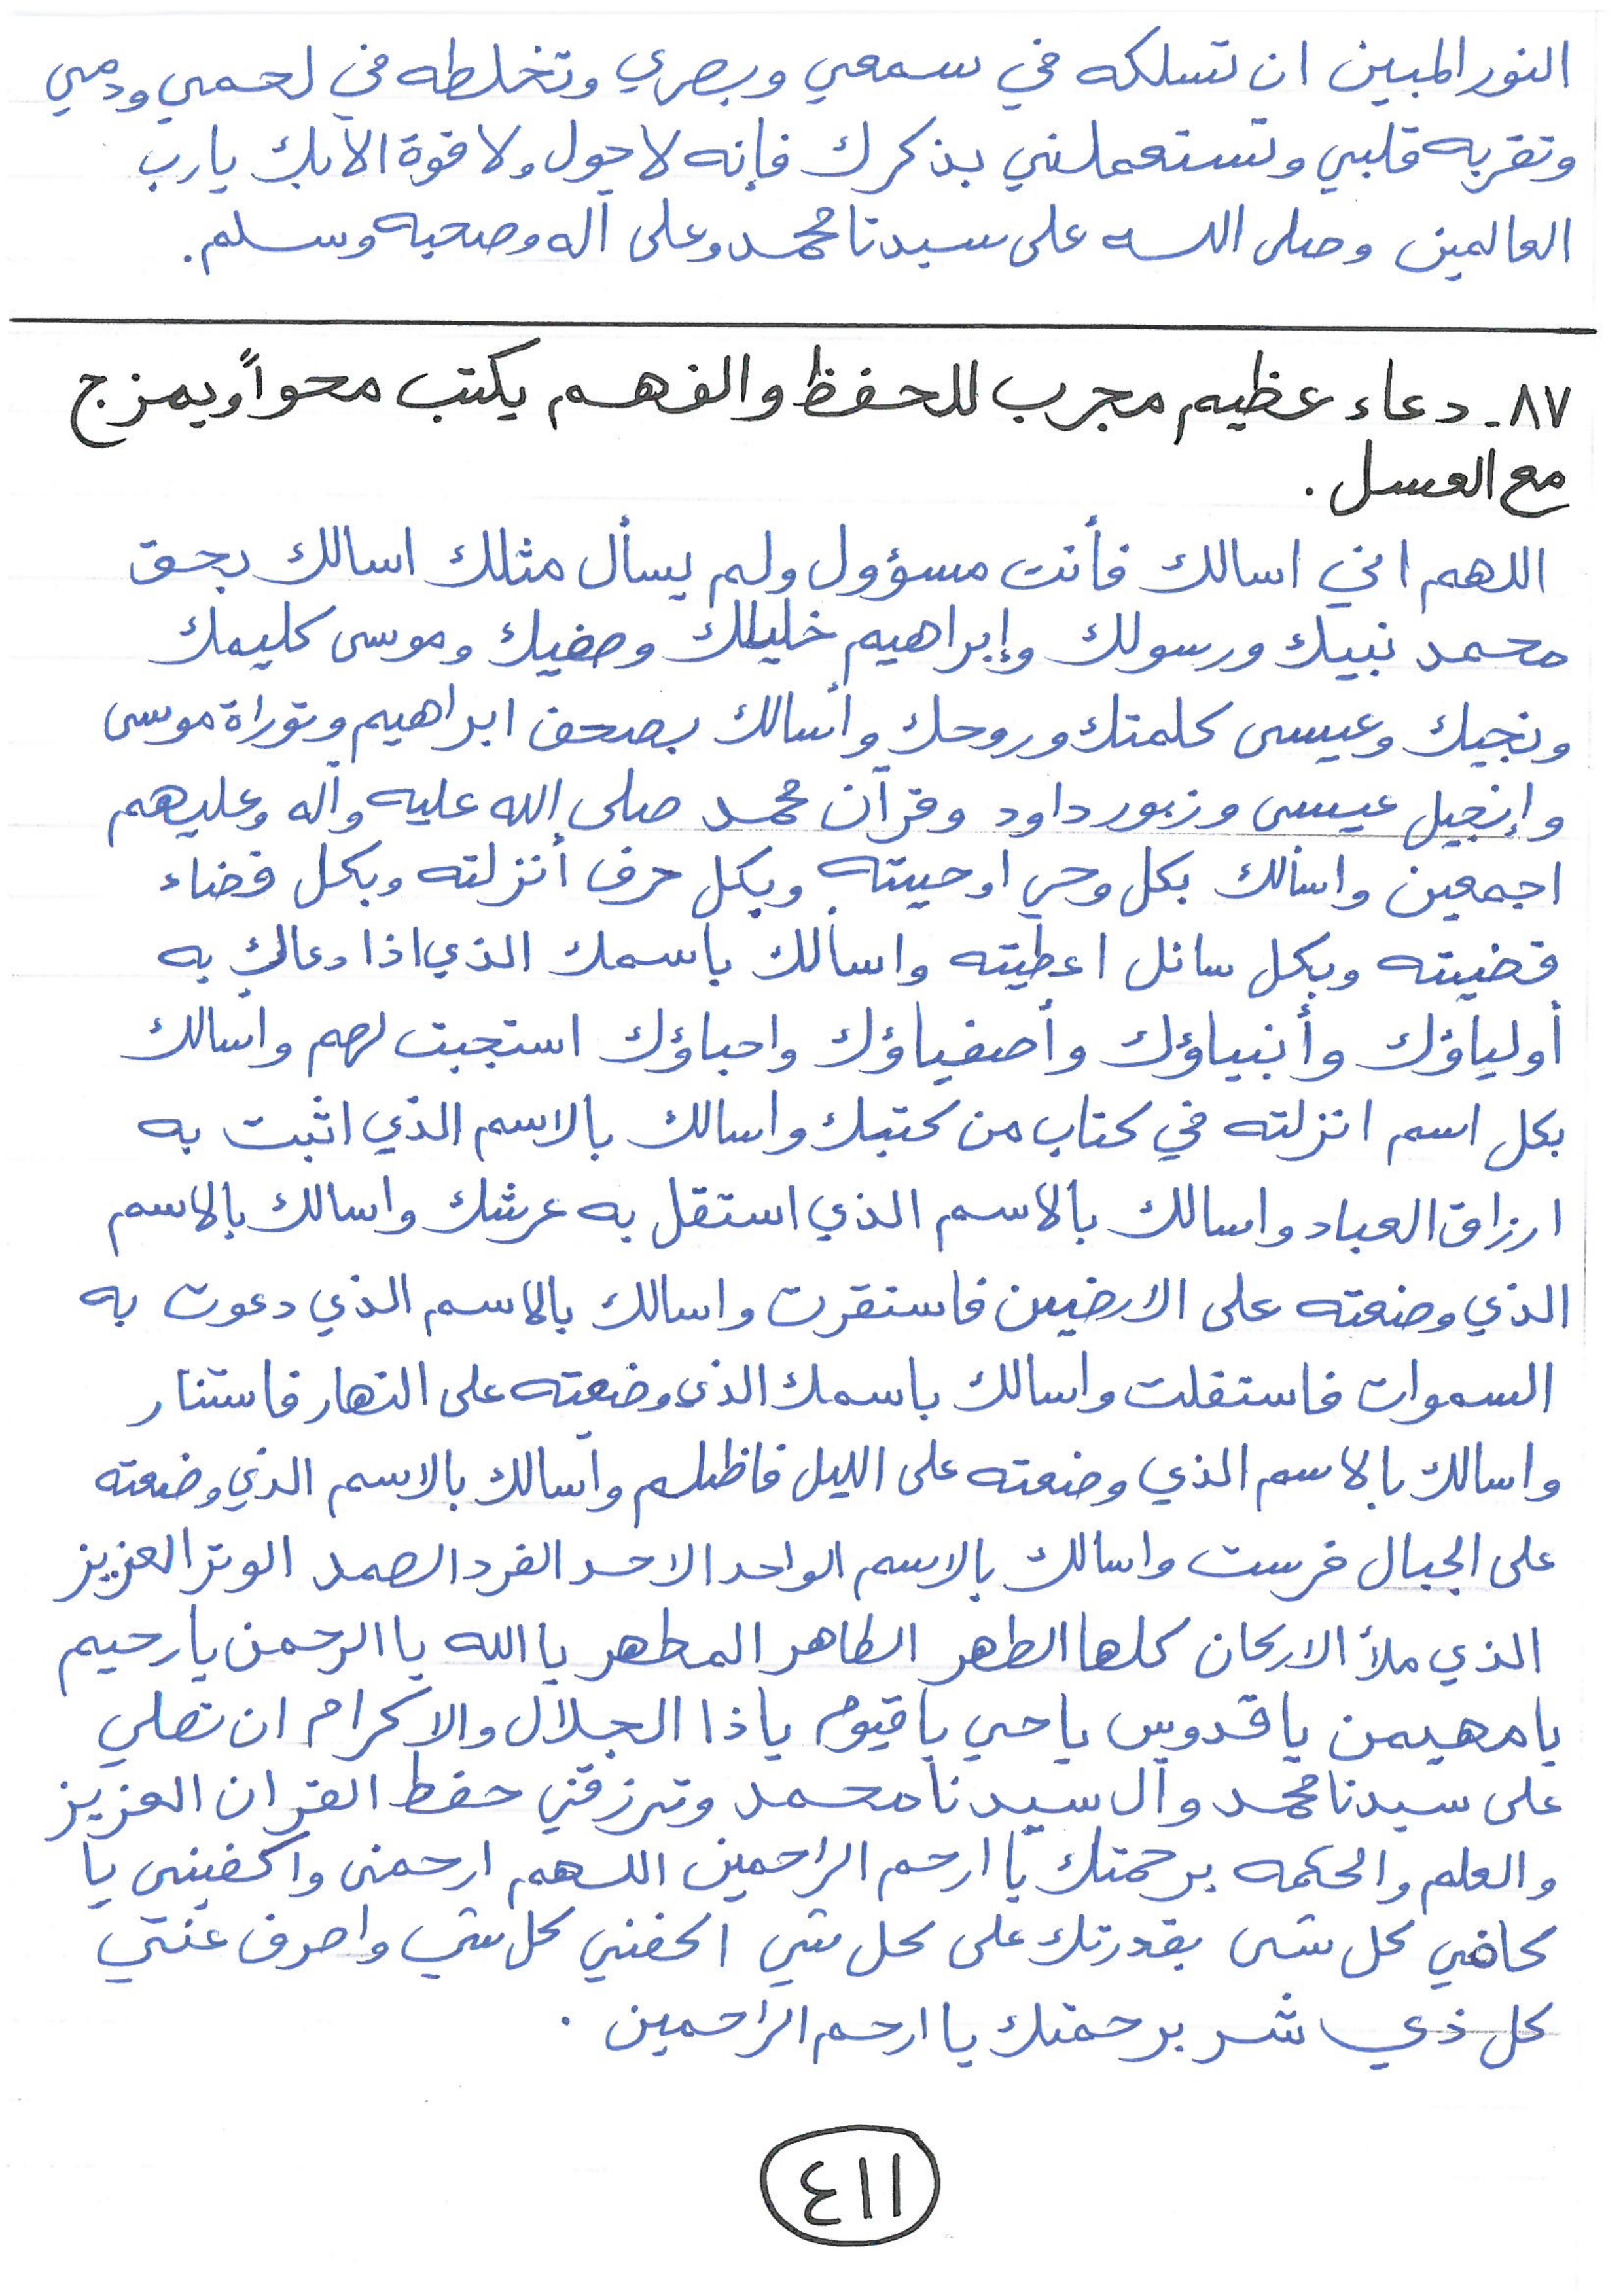 النور المبين ان تسلكه في سمعي وبصري وتخلطه في لحمي ودمي
وتقربه قلبي وتستعملني بذكرك فإنه لا حول ولا قوة الا بك يارب
العالمين وصلى الله على سيدنا محمد وعلى آله وصحبه وسلم.
٨٧- دعاء عظيم مجرب للحفظ والفهم يكتب محواً ويمزج
مع العسل.
اللهم اني اسالك فأنت مسؤول ولم يسأل مثلك اسالك بحق
محمد نبيك ورسولك وإبراهيم خليلك وصفيك وموسى كليمك
ونجيك وعيسى كلمتك وروحك وأسالك بصحف ابراهيم وتوراة موسى
وإنجيل عيسى وزبور داود وقرآن محمد صلى الله عليه وآله وعليهم
اجمعين واسألك بكل وحي اوحيته وبكل حرف أنزلته وبكل قضاء
قضيته وبكل سائل اعطيته واسألك باسمك الذي اذا دعاك به
أولياؤك وأنبياؤك وأصفياؤك واحباؤك استجبت لهم واسالك
بكل اسم انزلته في كتاب من كتبك واسالك بالاسم الذي اثبت به
ارزاق العباد واسالك بالاسم الذي استقل به عرشك واسالك بالاسم
الذي وضعته على الارضين فاستقرت واسالك بالاسم الذي دعوت به
السموات فاستقلت واسالك باسمك الذي وضعته على النهار فاستنار
واسالك بالاسم الذي وضعته على الليل فاظلم واسالك بالاسم الذي وضعته
على الجبال فرست واسالك بالاسم الواحد الاحد الفرد الصمد الوتر العزيز
الذي ملأ الاركان كلها الطهر الطاهر المطهر يا الله يا الرحمن يا رحيم
يا مهيمن يا قدوس يا حي يا قيوم يا ذا الجلال والاكرام ان تصلي
على سيدنا محمد وآل سيدنا محمد وترزقني حفظ القران العزيز
والعلم والحكمه برحمتك يا ارحم الراحمين اللهم ارحمنى واكفينى يا
كافي كل شى بقدرتك على كل شي اكفني كل شي واصرف عني
كل ذي شر برحمتك يا ارحم الراحمين.
٤١١